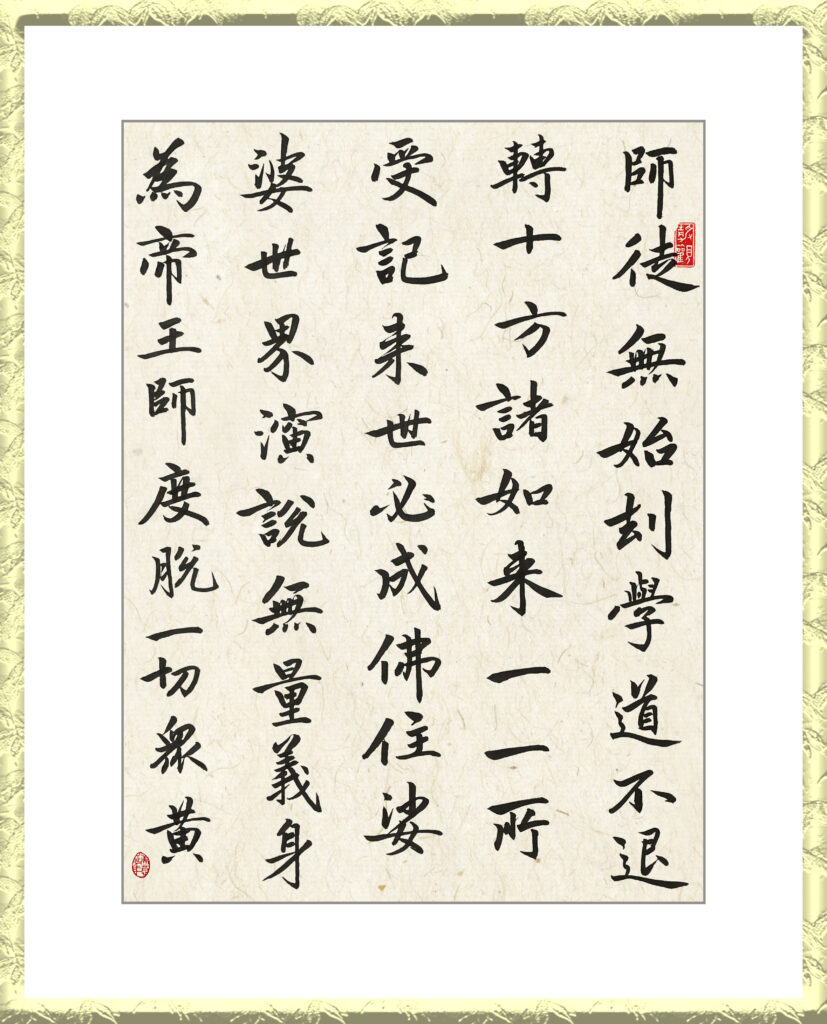 師徒無始刦學道不退
轉十方諸如来一一所
受記来世必成佛住娑
婆世界演説無量義身
為帝王師度脱一切衆黃